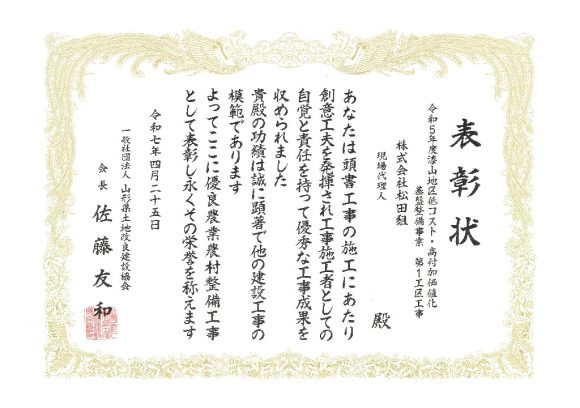 表彰状
令和5年度漆山地区低コスト・高付加価値化
基盤整備事業 第1工区工事
株式会社松田組
現場代理人
殿
あなたは頭書工事の施工にあたり
創意工夫を発揮され工事施工者としての
自覚と責任を持って優秀な工事成果を
収められました
貴殿の功績は誠に顕著で他の建設工事の
模範であります
よってここに優良農業農村整備工事
として表彰し永くその栄誉を称えます
令和七年四月二十五日
一般社団法人 山形県土地改良建設協会
会長 佐藤友和